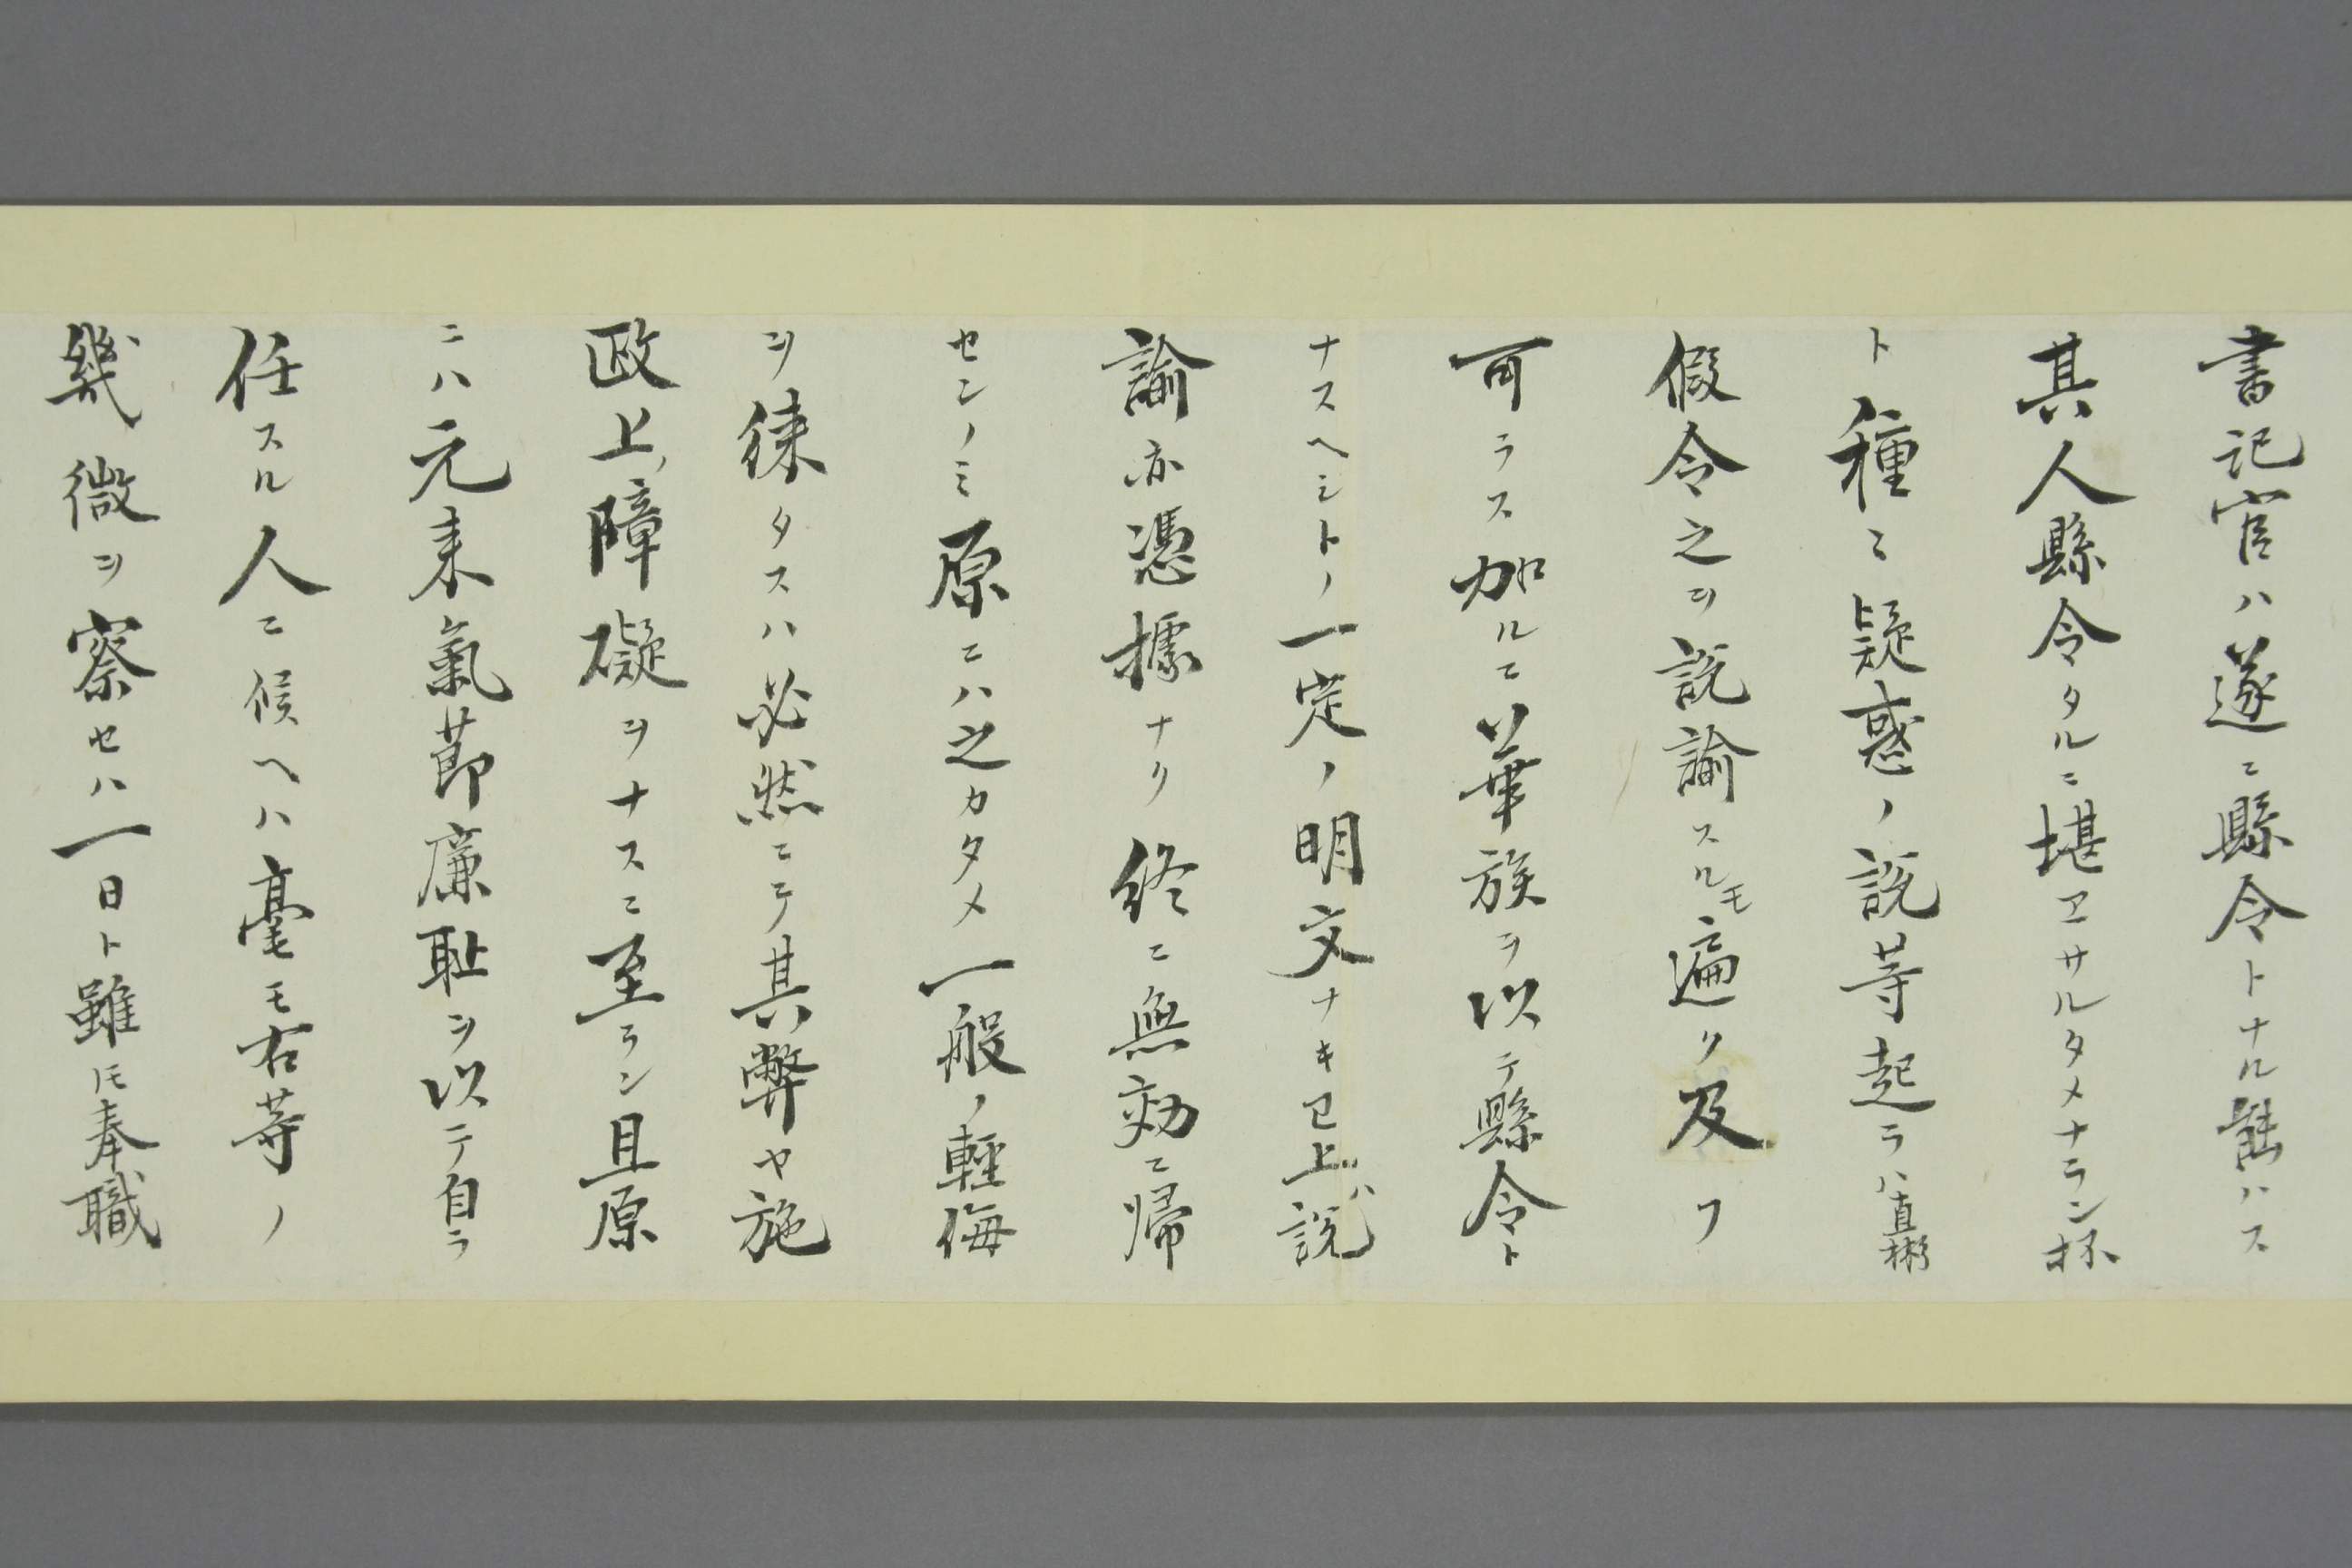 書記官ハ遂ニ縣令トナル能ハス
其人縣令タルニ堪ヱサルタメナラン抔
ト種〻疑惑ノ説等起ラハ直彬
假令之ヲ説諭スルモ遍ク及フ
可ラス加ルニ華族ヲ以テ縣令ト
ナスヘシトノ一定ノ明文ナキ已上ハ説
諭亦憑據ナク終ニ無効ニ帰
センノミ原ニハ之カタメ一般ノ輕侮
ヲ徠タスハ必然ニテ其弊ヤ施
政上ノ障礙ヲナスニ至ラン且原
ニハ元来氣節廉耻ヲ以テ自ラ
任スル人ニ候ヘハ毫モ右等ノ
幾微ヲ察セハ一日ト雖𪜈奉職